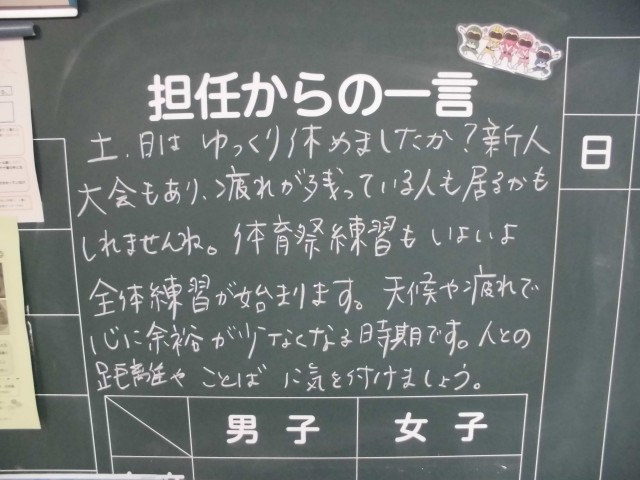 担任からの一言
土、日は ゆっくり休めましたか？新人
大会もあり、疲れが残っている人も居るかも
しれませんね。体育祭練習も いよいよ
全体練習が始まります。天候や疲れで
心に余裕が少なくなる時期です。人との
距離や ことば に気を付けましょう。
日
男子 女子